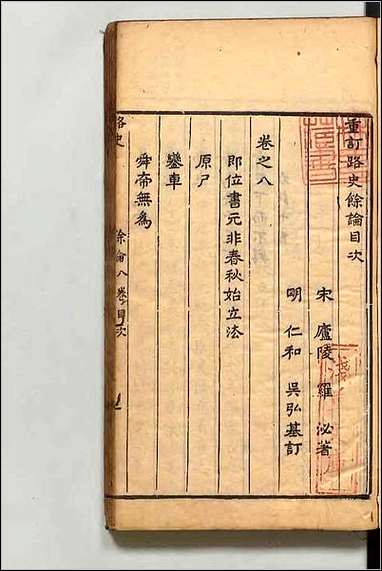 重訂路史餘論目次
宋 廬陵 羅 泌著
明 仁和 吳弘基訂
卷之八
即位書元非春秋始立法
原尸
舜帝無為
路史 餘論八卷目次